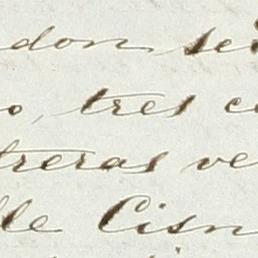 don se
o, tres c
treras ve
lle Cisn